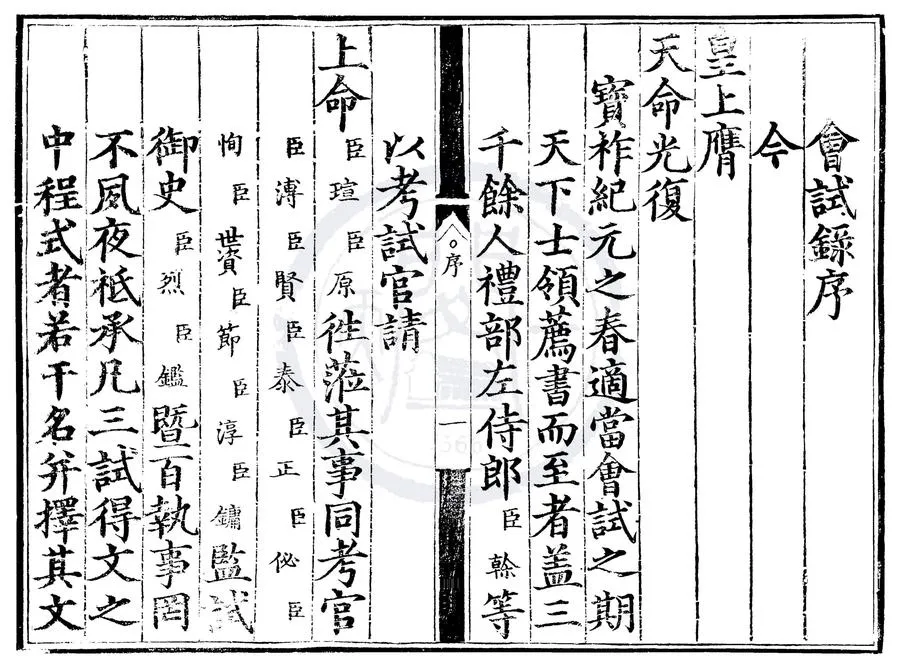 會試錄序
今
皇上膺
天命光復
寶祚紀元之春適當會試之期
天下士領薦書而至者盖三
千餘人禮部左侍郎臣榦等
序
一
以考試官請
上命臣瑄臣原徃蒞其事同考官
臣溥臣賢臣泰臣正臣佖臣
恂臣世資臣節臣淳臣鏞監試
御史臣烈臣鑑暨百執事罔
不夙夜祗承凡三試得文之
中程式者若干名并擇其文